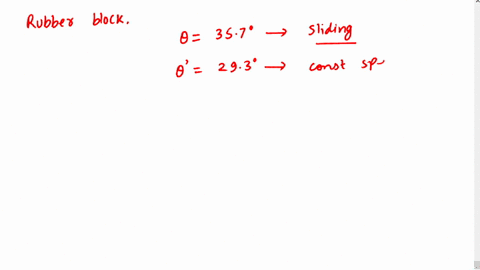 Rubber block.
θ = 35.7° → sliding
θ' = 29.3° → const sp